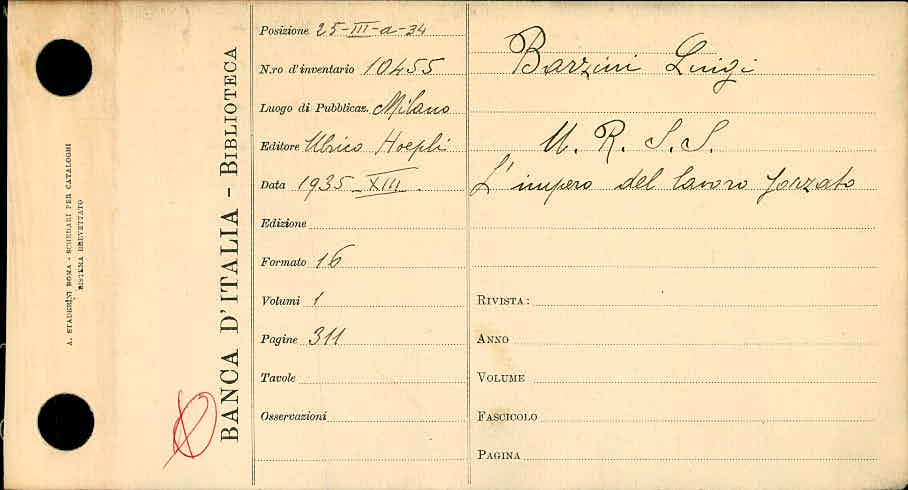 A. STADERINI ROMA - SCHEDARI PER CATALOGHI
SISTEMA BREVETTATO
BANCA D'ITALIA - BIBLIOTECA
Posizione 25-III-a-34
N.ro d'inventario 10455
Luogo di Pubblicaz. Milano
Editore Ulrico Hoepli
Data 1935-XIII.
Edizione
Formato 16
Volumi 1
Pagine 311
Tavole
Osservazioni
Barzini Luigi
U. R. S. S.
L'impero del lavoro forzato
RIVISTA:
ANNO
VOLUME
FASCICOLO
PAGINA